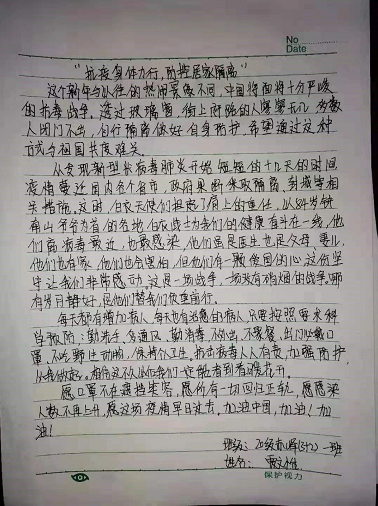 No
Date
"抗疫身体力行,防控居家隔离"
这个新年与以往的热闹景像不同,中国将面将十分严峻
的抗毒战争。透过玻璃窗,街上所能的人寥寥无几,多数
人闭门不出,自行隔离做好自身防护,希望通过这种
方式与祖国共度难关。
从发现新型 病毒肺炎开始,短短的十几天的时间
疫情蔓延国内各个省市,政府果断采取隔离,封城等相
关措施,这时,白衣天使们担起了肩上的重任,以84岁钟
南山爷爷为首的各地白衣战士为我们的健康奋斗在一线,他
们离病毒最近,也最易感染,他们虽是医生,也是父母,妻儿,
他们也有家,他们也会害怕,但他们有颗爱国的心,这份坚
毕让我们非常感动,这是一场战争,一场没有硝烟的战争。哪
有岁月静好,是他们替我们负重前行。
每天都有增加病人,每天也有治愈的病人,只要按照要求科
学预防:勤洗手,多通风,勤消毒,不外出,不聚餐,出门必戴口
罩,不吃野生动物,保持个卫生。抗击病毒人人有责,加强防护,
从我做起。相信这次 我们一定能看到春暖花开。
愿口罩不在遮挡笑容,愿所有一切回归正轨,愿感染
人数不再上升,愿这场疫情早日过去。加油中国,加油!加
油!
班级:20级 (3+2)一班
姓名:
保护视力